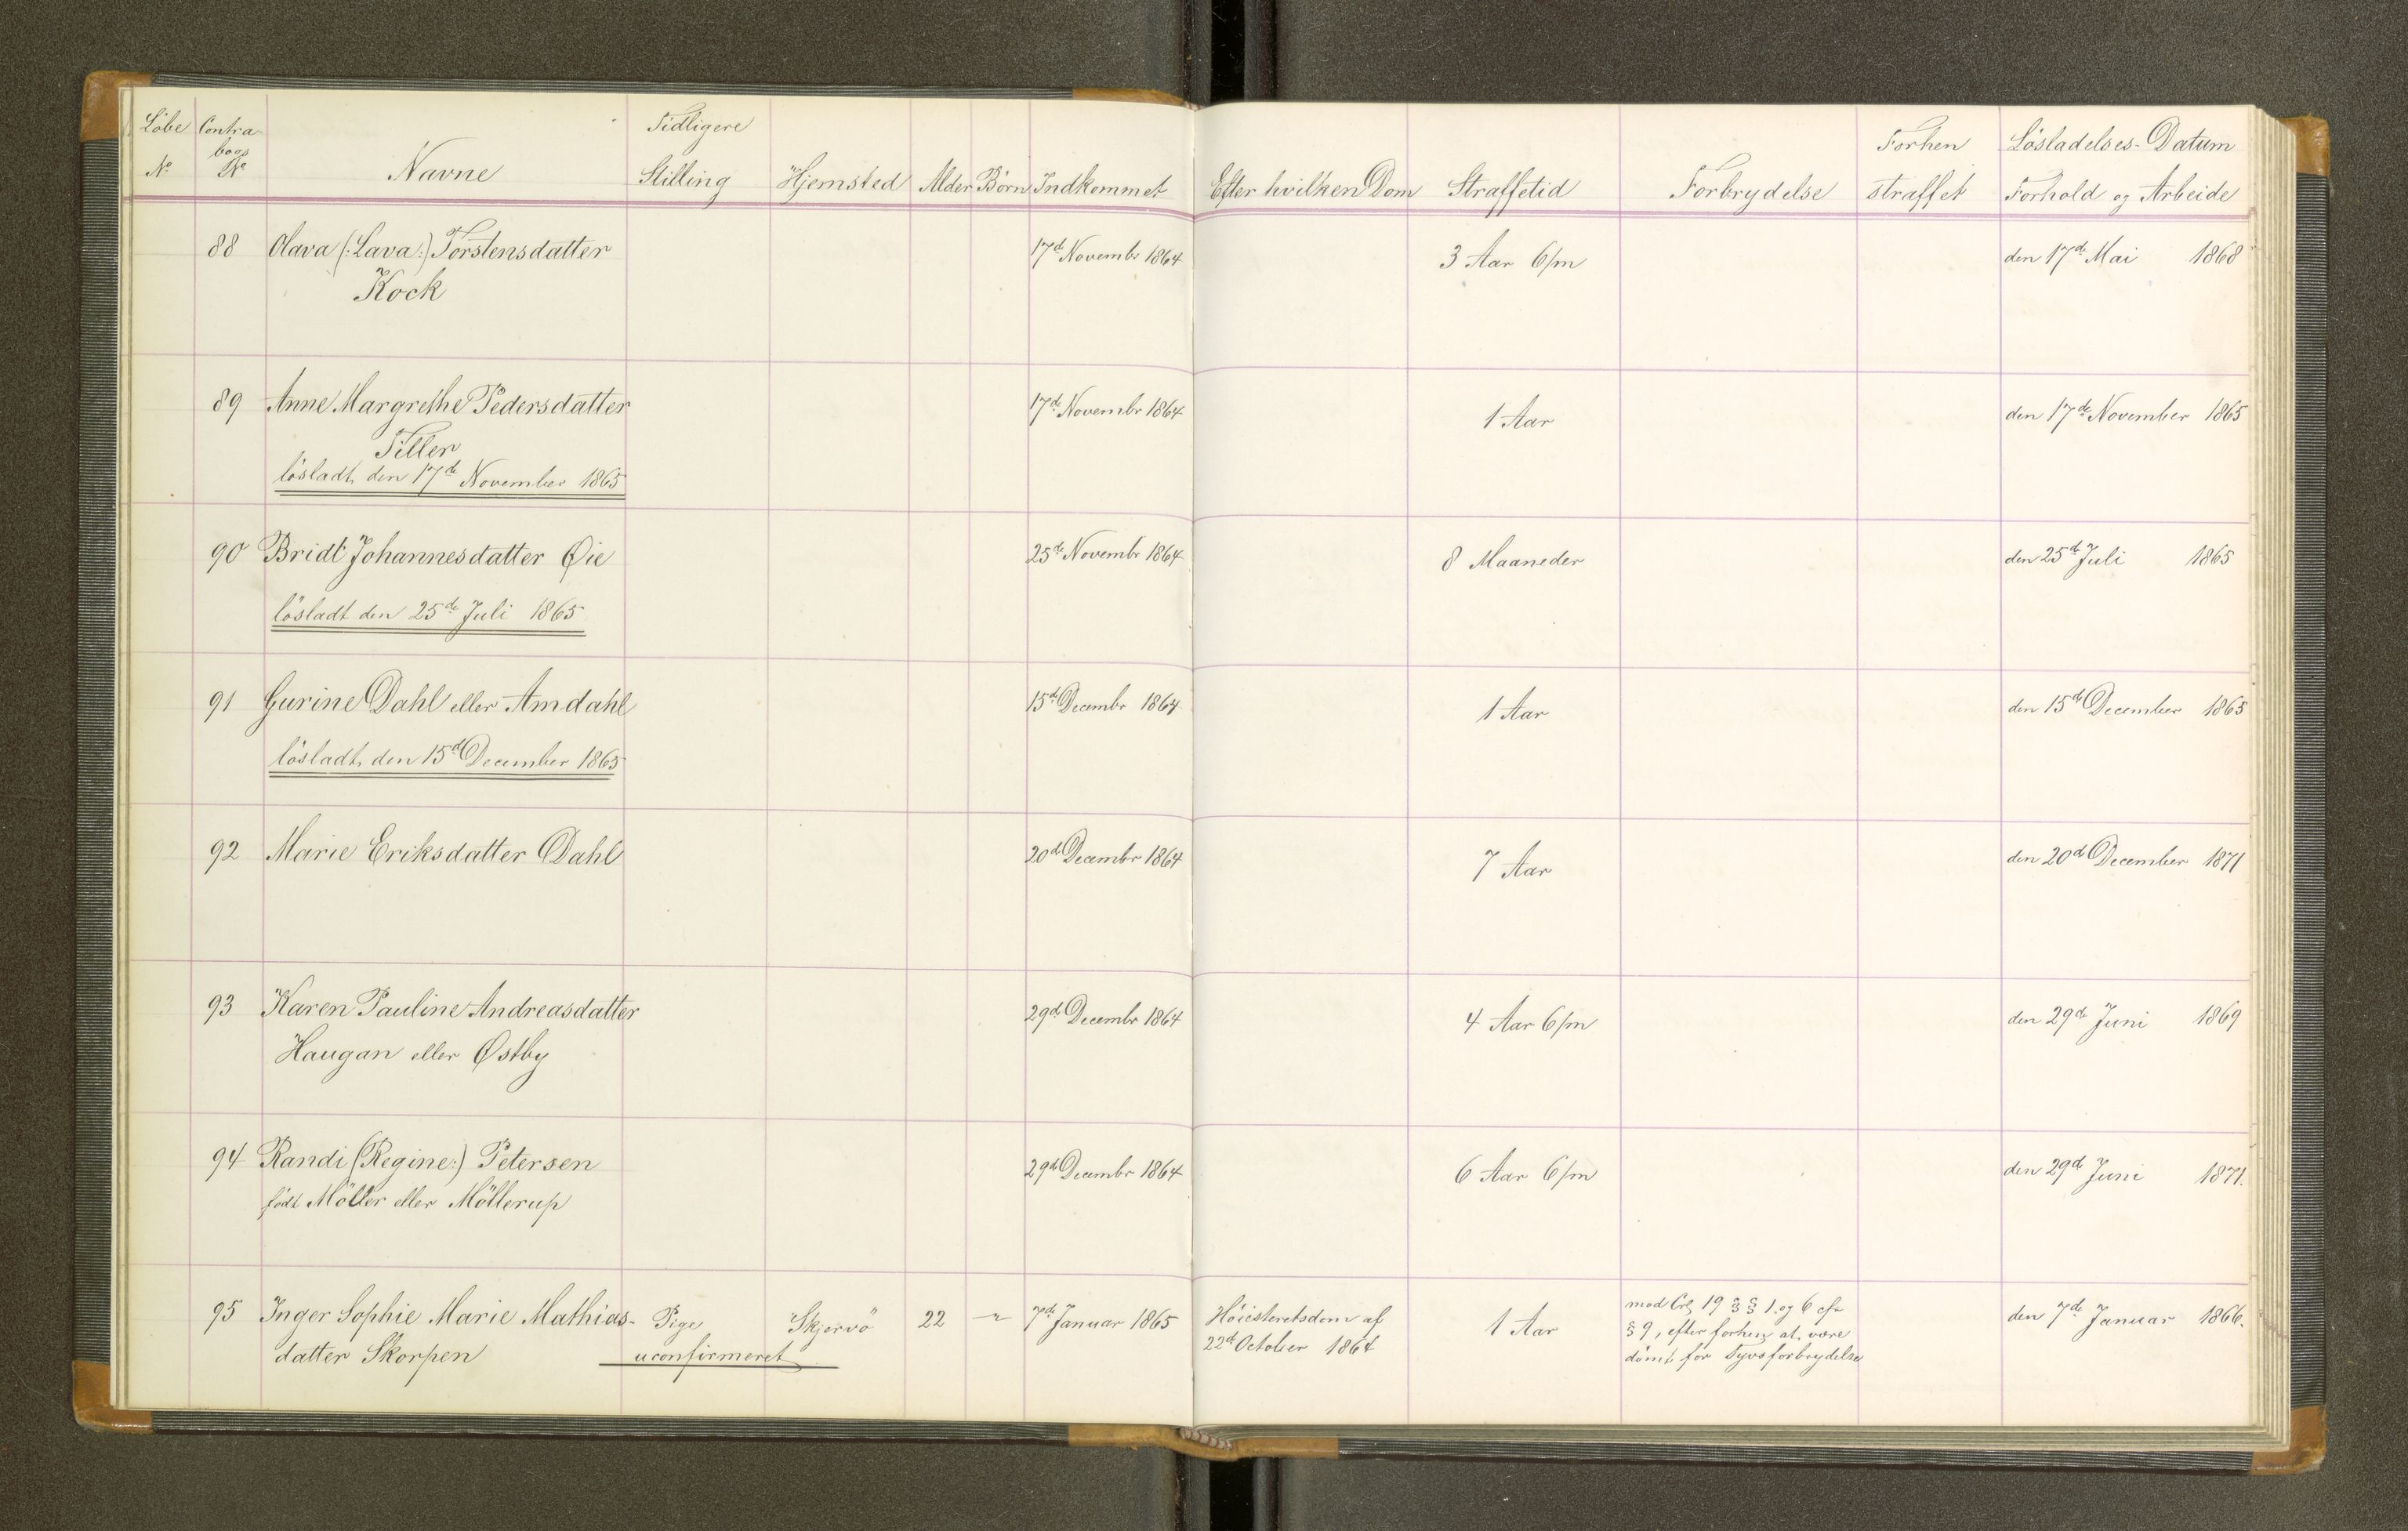 Löbe Contra- Tidligere Forhen Lösladelses-Datum
No bogs No Navne Stilling Hjemsted Alder Börn Indkommet Efter hvilken Dom Straffetid Forbrydelse straffet Forhold og Arbeide
88 Olava (:Lava:) Torstensdatter 17de Novembr 1864 3 Aar 6/m den 17de Mai 1868
Kock
89 Anne Margrethe Pedersdatter 17de Novembr 1864 1 Aar den 17de November 1865
Tiller
lösladt den 17de November 1865
90 Bridt Johannesdatter Øie 25de Novembr 1864 8 Maaneder den 25de Juli 1865
lösladt den 25de Juli 1865
91 Gurine Dahl eller Amdahl 15de Decembr 1864 1 Aar den 15de December 1865
lösladt den 15de December 1865
92 Marie Eriksdatter Dahl 20de Decembr 1864 7 Aar den 20de December 1871
93 Karen Pauline Andreasdatter 29de Decembr 1864 4 Aar 6/m den 29de Juni 1869
Haugan eller Østby
94 Randi (Regine:) Petersen 29de Decembr 1864 6 Aar 6/m den 29de Juni 1871.
födt Möller eller Möllerup
95 Inger Sophie Marie Mathias- Pige Skjervö 22 — 7de Januar 1865 Höiesteretsdom af 1 Aar mod Crl 19 § § 1. og 6 cfr den 7de Januar 1866.
datter Skorpen uconfirmeret 22de October 1864 § 9, efter forhen at være
dömt for Tyvsforbrydelse